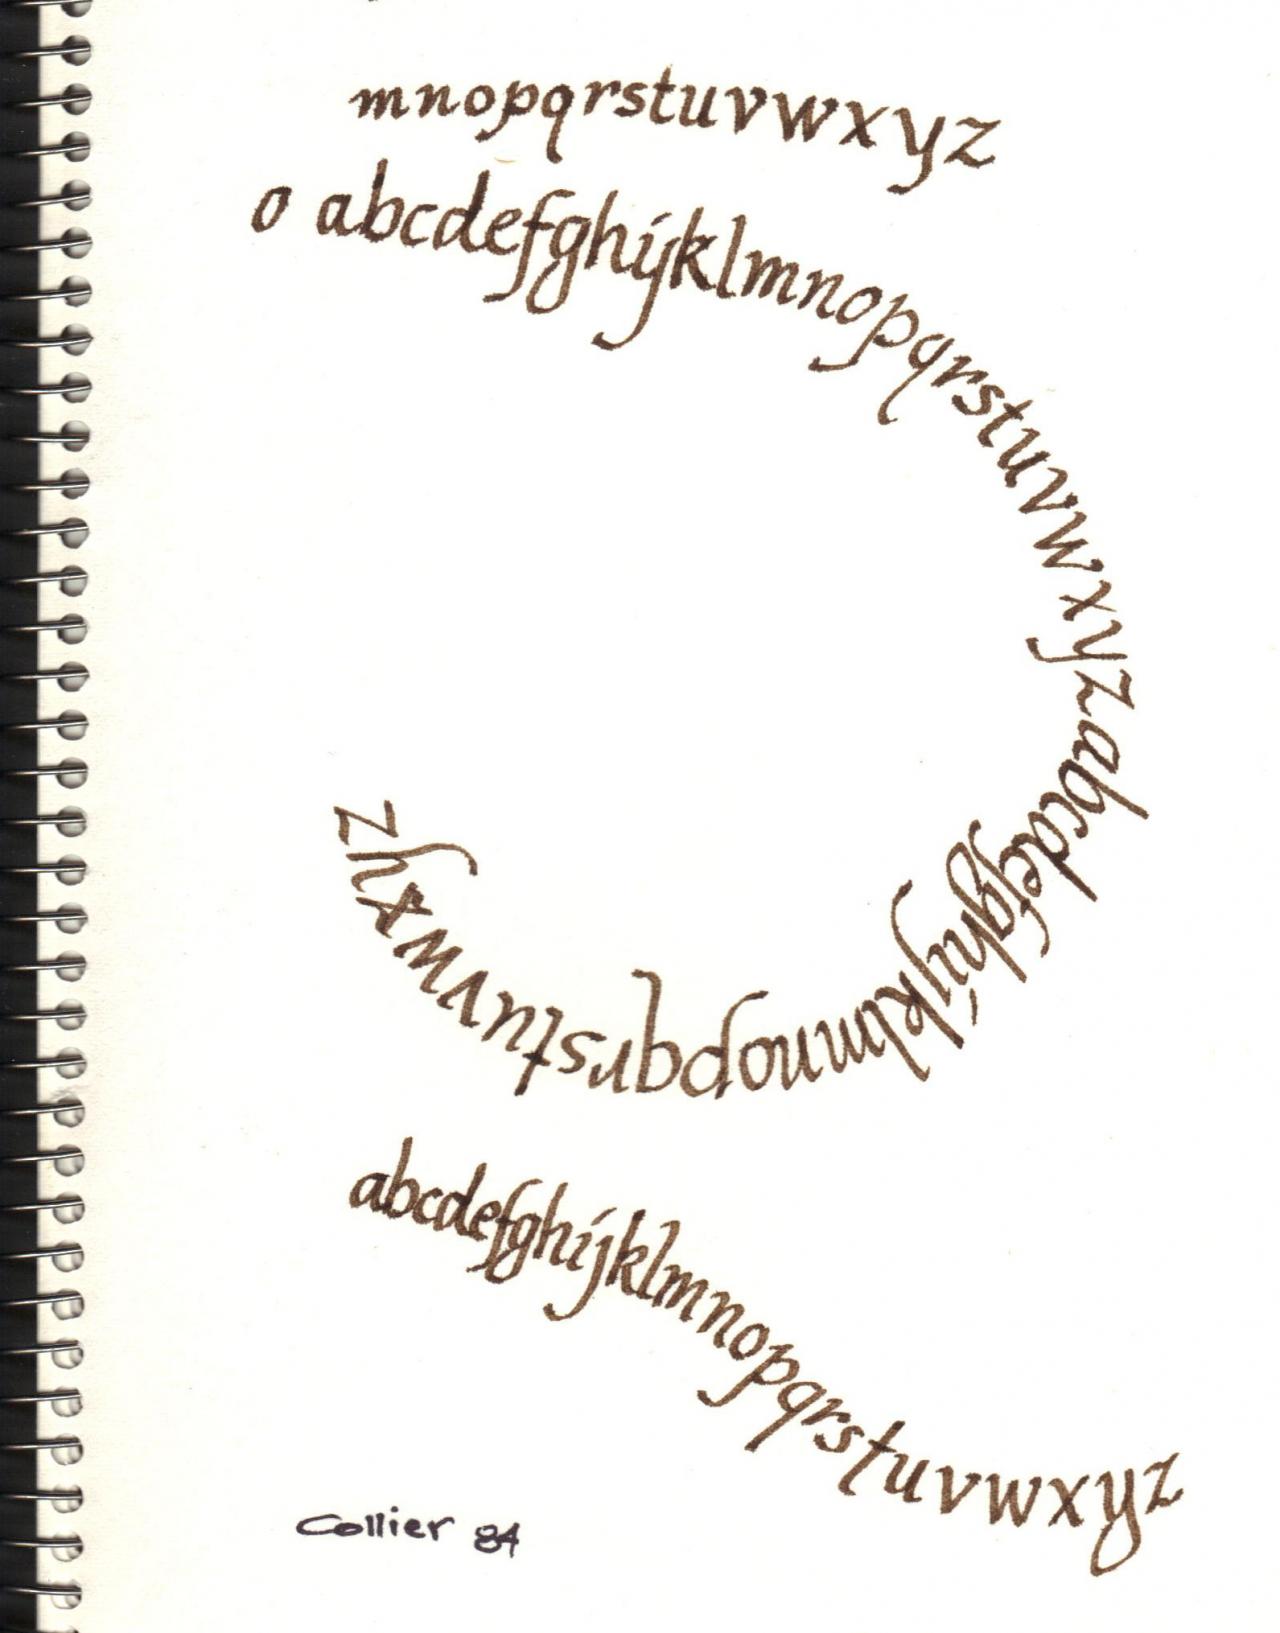 mnopqrstuvwxyz
o abcdefghijklmnopqrstuvwxyzabcdefghijklmnopqrstuvwxyz
abcdefghijklmnopqrstuvwxyz
Collier 84